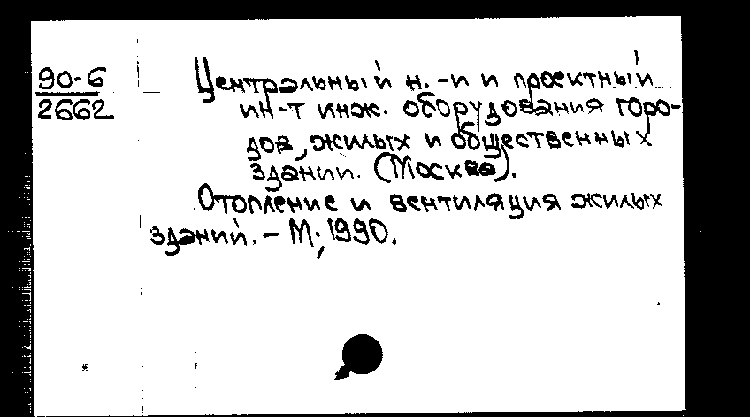 90-6
2662
Центральный н.-и и проектный
ин-т инж. оборудования горо-
дов, жилых и общественных
зданий. (Москва).
Отопление и вентиляция жилых
зданий. – М., 1990.